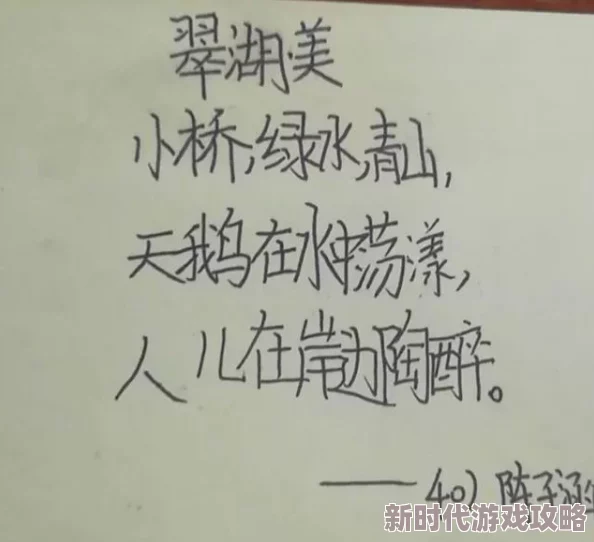 翠湖美
小桥,绿水,青山,
天鹅在水中荡漾,
人儿在岸边陶醉。
——401陈子涵
新时代游戏攻略